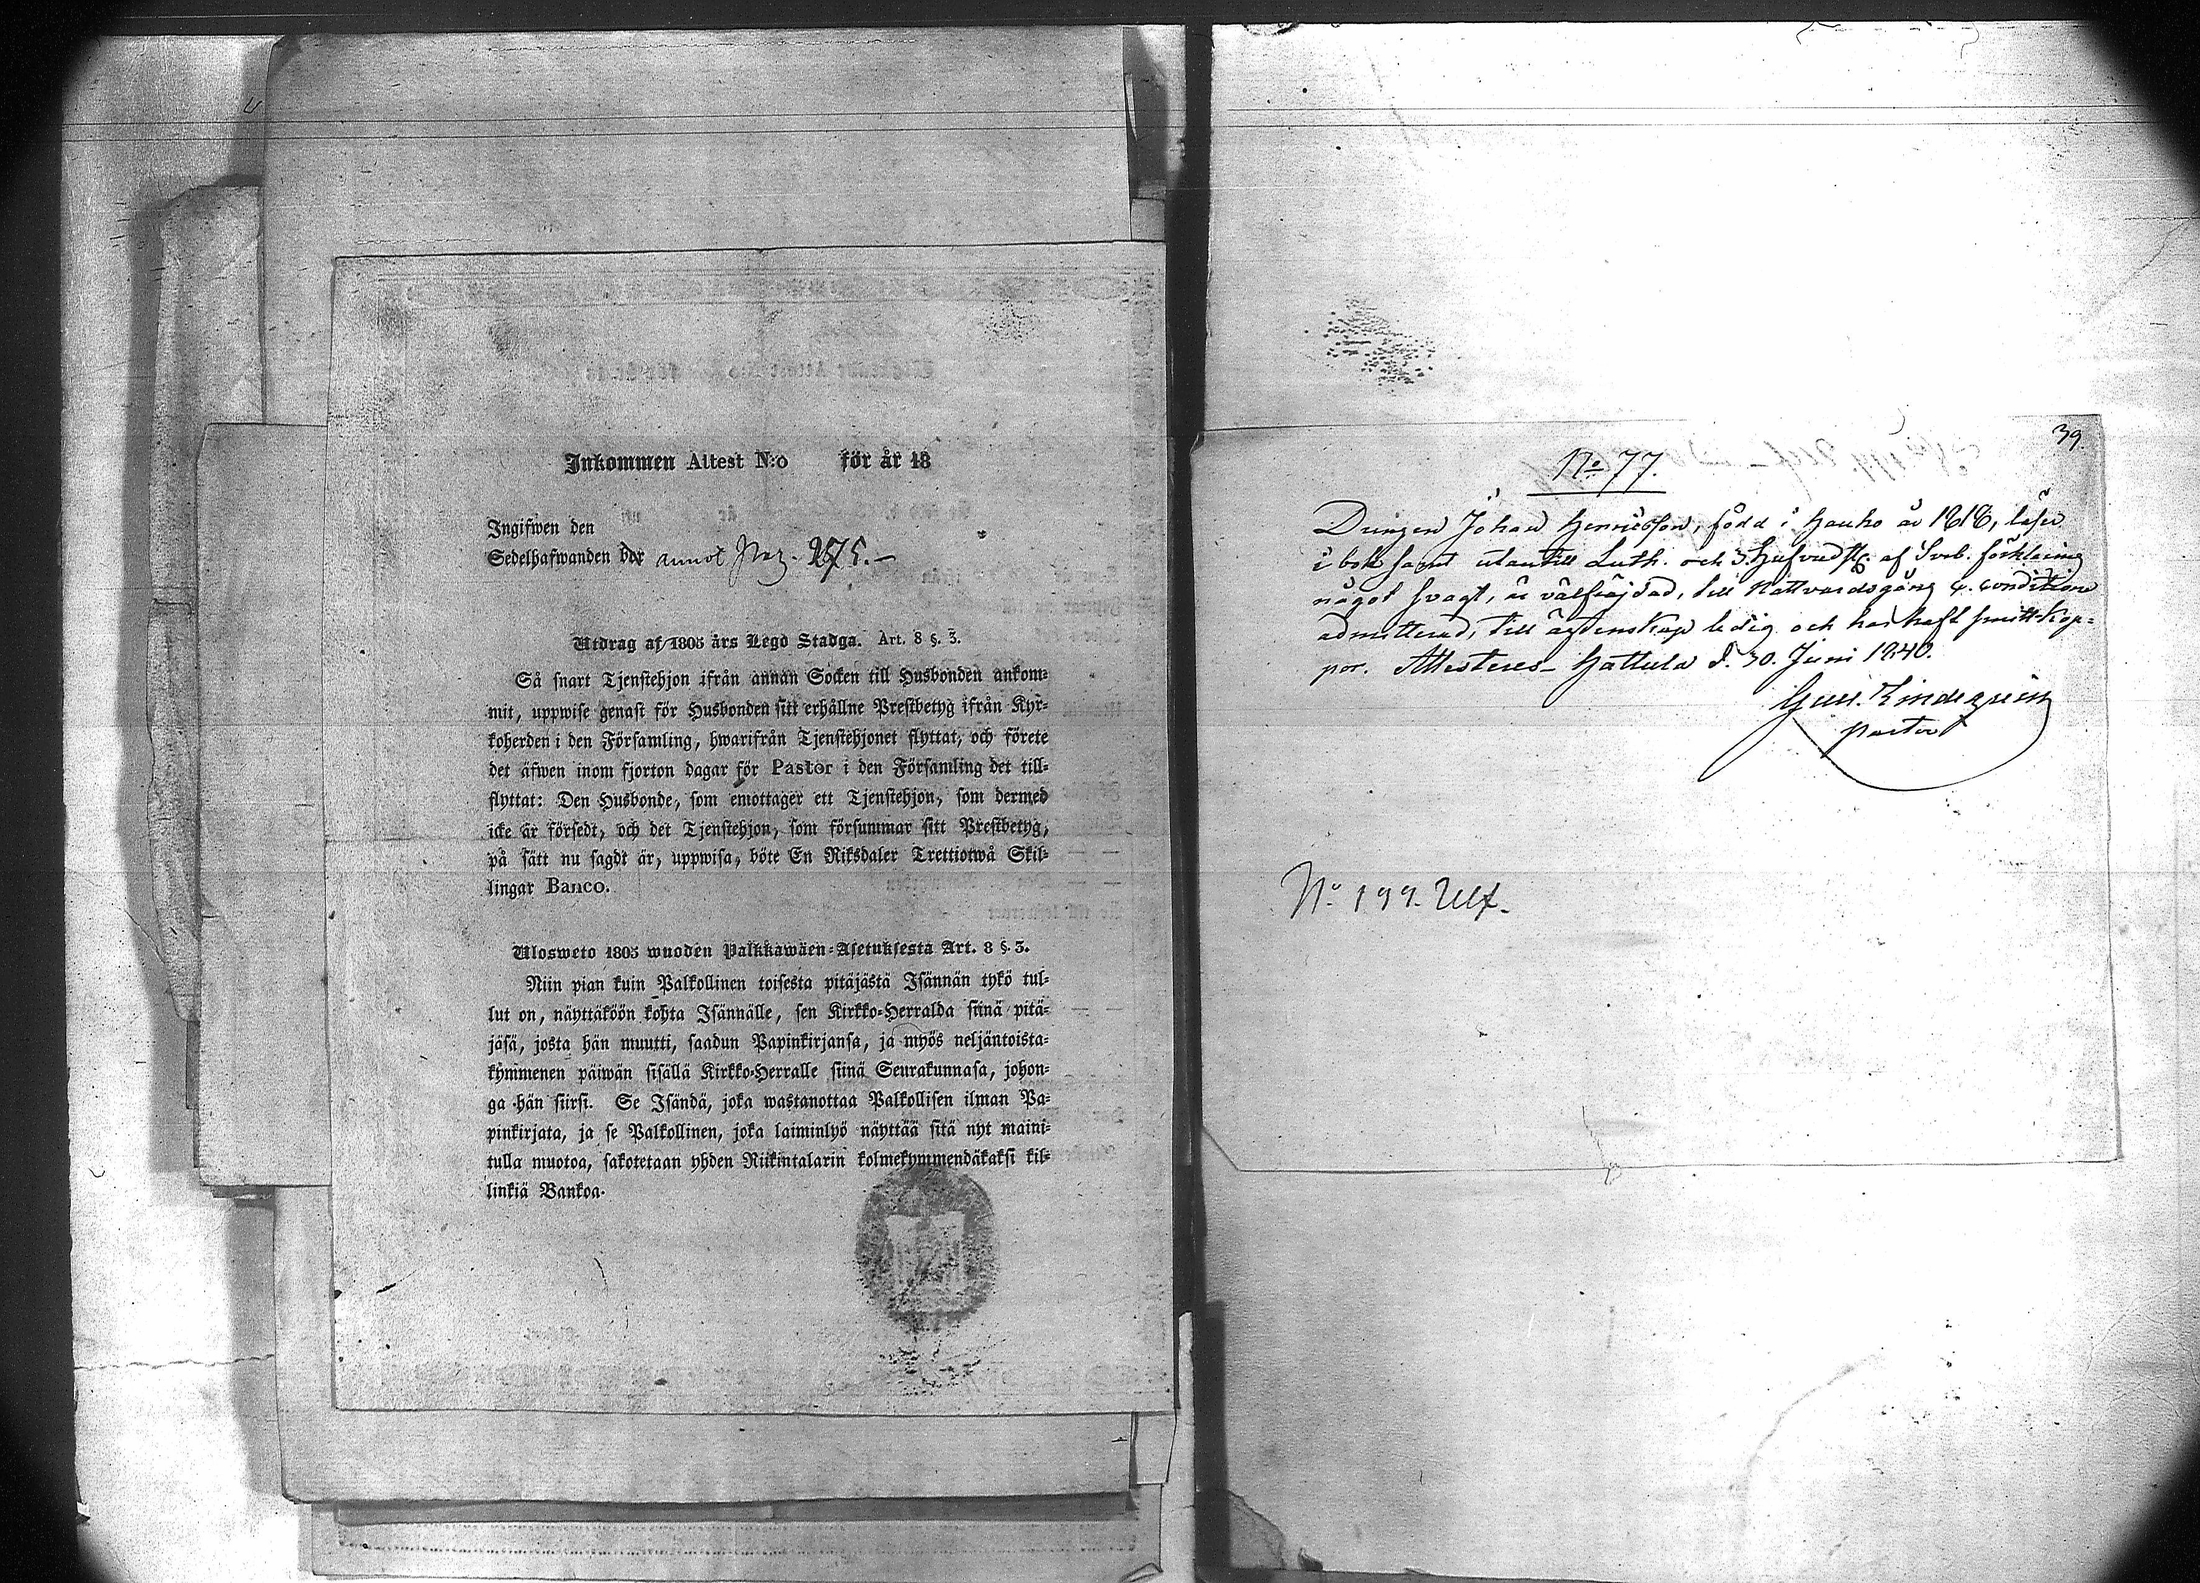 Inkommen Attest N:o för år 18
Ingifwen den
Sedelhafwanden bor annot Pag. 275.
Utdrag af 1805 års Lego Stadga. Art. 8 §. 3.
Så snart Tjenstehjon ifrån annan Socken till Husbonden ankom-
mit, uppwise genast för Husbonden sitt erhållne Prestbetyg ifrån Kyr-
koherden i den Församling, hwarifrån Tjenstehjonet flyttat, och förete
det äfwen inom fjorton dagar för Pastor i den Församling det till-
flyttat: Den Husbonde, som emottager ett Tjenstehjon, som dermed
icke är försedt, och det Tjenstehjon, som försummar sitt Prestbetyg,
på sätt nu sagdt är, uppwisa, böte En Riksdaler Trettiotwå Skil-
lingar Banco.
Ulosweto 1805 wuoden Palkkawäen-Asetuksesta Art. 8 §. 3.
Niin pian kuin Palkollinen toisesta pitäjästä Isännän tykö tul-
lut on, näyttäköön kohta Isännälle, sen Kirkko-Herralda siinä pitä-
jäsä, josta hän muutti, saadun Papinkirjansa, ja myös neljäntoista-
kymmenen päiwän sisällä Kirkko-Herralle siinä Seurakunnasa, johon-
ga hän siirsi. Se Isändä, joka wastanottaa Palkollisen ilman Pa-
pinkirjata, ja se Palkollinen, joka laiminlyö näyttää sitä nyt maini-
tulla muotoa, sakotetaan yhden Riikintalarin kolmekymmendäkaksi kil-
linkiä Bankoa.
39.
No 77.
Drängen Johan Henricsson, född i Hauho år 1818, läser
i bok samt utantill Luth. och 3 Hufvudst. af Sveb. förklaring
något svagt, är välfräjdad, till Nattvardsgång q. conditione
admitterad, till ägtenskap ledig och har haft smittkop-
por. Attesteres Hattula d. 30. Juni 1840.
Gust. Lindeqvist
pastor
No 199. Utf.